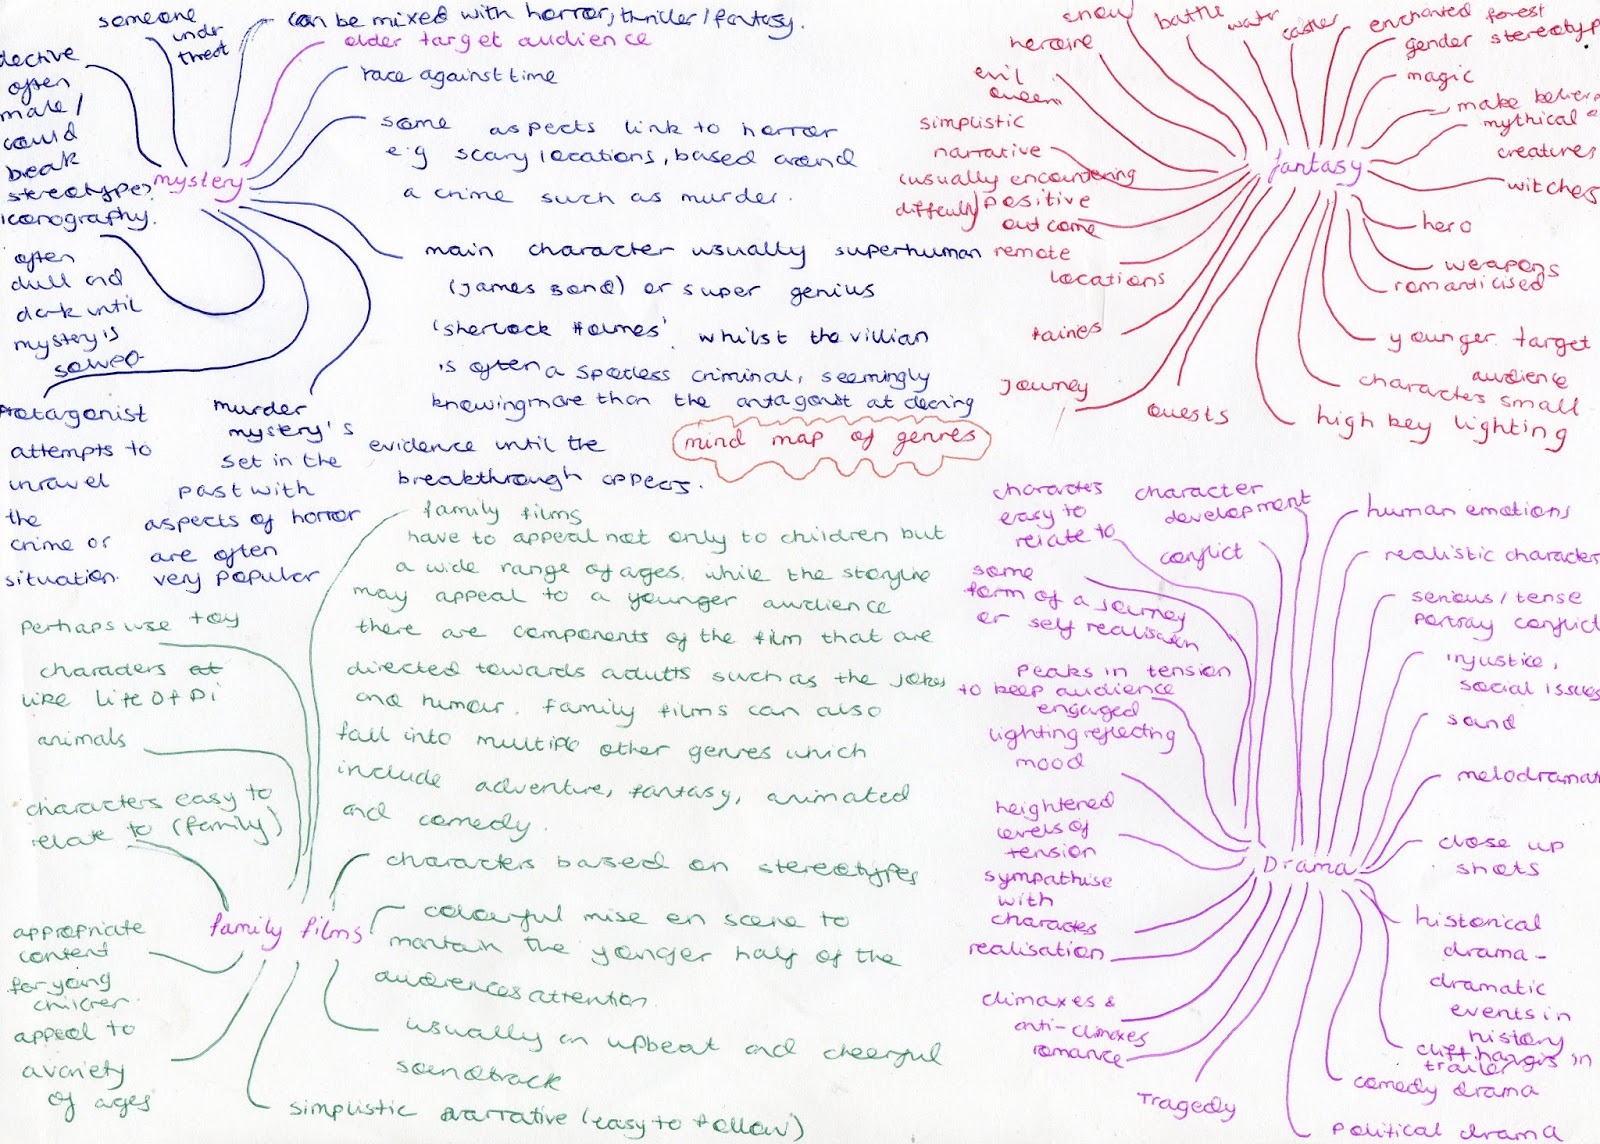 mind map of genres
mystery
dective
often
male/
could
break
stereotype?
someone
undr
threat
can be mixed with horror, thriller/fantasy.
older target audience
race against time
some aspects link to horror
e.g scary locations, based around
a crime such as murder.
main character usually superhuman
(James Bond) or super genius
'sherlock Holmes'. whilst the villian
is often a spotless criminal, seemingly
knowing more than the antagonist at decring
evidence until the
breakthrough appears.
iconography.
often
dull and
dark until
mystery is
solved
Protagonist
attempts to
unravel
the
crime or
situation.
murder
mystery's
set in the
past with
aspects of horror
are often
very popular
fantasy
snow
battle
water
castles
enchanted forest
gender stereotyp
magic
make believe
mythical
creatures
witches
hero
weapons
romanticised
younger target
audience
characters small
high key lighting
quests
Journey
fairies
remote
locations
simplistic
narrative
(usually encountering
difficulty/positive
outcome
evil
queen
heroine
family films
family films
have to appeal not only to children but
a wide range of ages. while the storyline
may appeal to a younger audience
there are components of the film that are
directed towards adults such as the jokes
and humour. family films can also
fall into multiple other genres which
include adventure, fantasy, animated
and comedy.
characters based on stereotypes
colourful mise en scene to
maintain the yonger half of the
audiences attention.
usually an upbeat and cheerful
soundtrack
simplistic narrative (easy to follow)
perhaps use toy
characters
like Life Of Pi
animals
characters easy to
relate to (family)
appropriate
content
for young
children
appeal to
a variety
of ages
Drama
characters
easy to
relate to
character
development
conflict
some
form of a journey
or self realisation
peaks in tension
to keep audience
engaged
lighting reflecting
mood
heightened
levels of
tension
sympathise
with
characters
realisation
climaxes &
anti-climaxes
romance
Tragedy
human emotions
realistic character
serious/tense
portray conflict
injustice,
social issues
sound
melodramat
close up
shots
historical
drama -
dramatic
events in
history
cliff hangers in
trailer
comedy drama
political drama